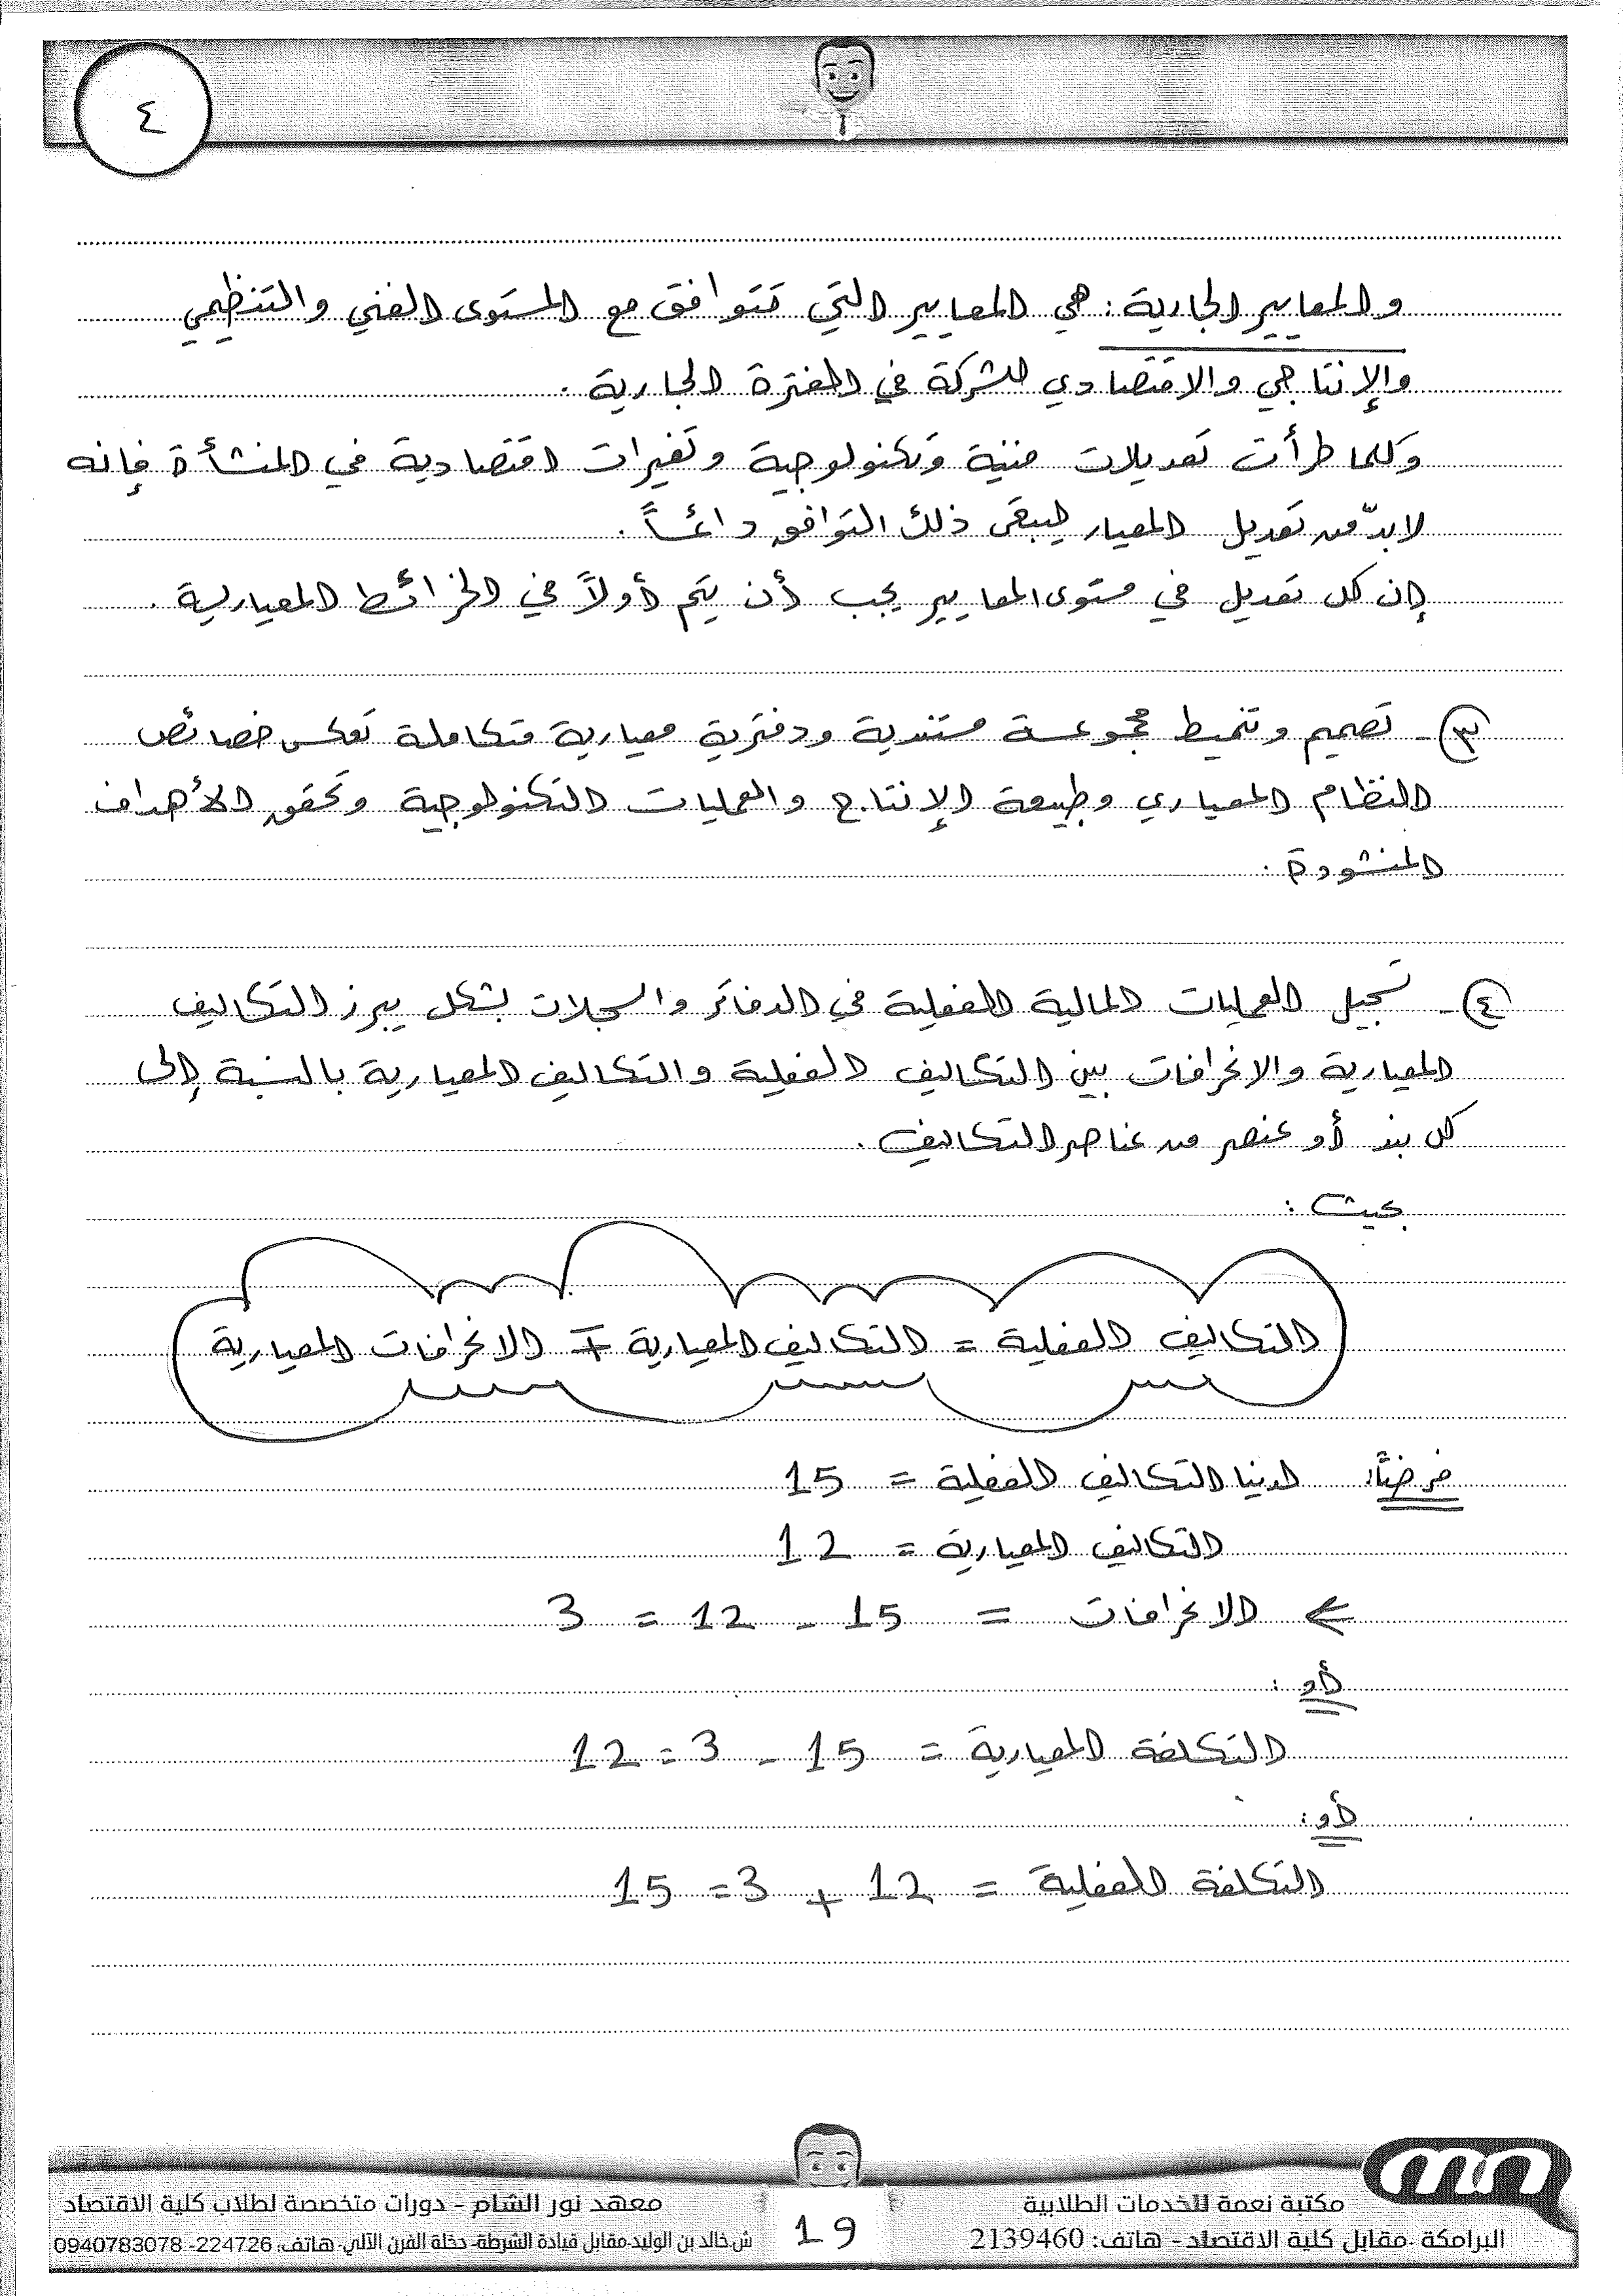 ٤
والمعايير الجارية : هي المعايير التي تتوافق مع المستوى الفني والتنظيمي
والإنتاجي والاقتصادي للشركة في الفترة الجارية .
وكلما طرأت تعديلات فنية وتكنولوجية وتغيرات اقتصادية في المنشأة فإنه
لابدّ من تعديل المعيار ليبقى ذلك التوافق دائماً .
إن كل تعديل في مستوى المعايير يجب أن يتم أولاً في الخرائط المعيارية .
٣- تصميم وتنميط مجموعة مستندية ودفترية معيارية متكاملة تعكس خصائص
النظام المعياري وطبيعة الإنتاج والعمليات التكنولوجية وتحقق الأهداف
المنشودة .
٤- تسجيل العمليات المالية الفعلية في الدفاتر والسجلات بشكل يبرز التكاليف
المعيارية والانحرافات بين التكاليف الفعلية والتكاليف المعيارية بالنسبة إلى
كل بند أو عنصر من عناصر التكاليف .
بحيث :
التكاليف الفعلية = التكاليف المعيارية ∓ الانحرافات المعيارية
فرضاً: لدينا التكاليف الفعلية = 15
التكاليف المعيارية = 12
⇐ الانحرافات = 15 - 12 = 3
أو :
التكلفة المعيارية = 15 - 3 = 12
أو :
التكلفة الفعلية = 12 + 3 = 15
مكتبة نعمة للخدمات الطلابية
البرامكة -مقابل كلية الاقتصاد - هاتف: 2139460
19
معهد نور الشام - دورات متخصصة لطلاب كلية الاقتصاد
ش.خالد بن الوليد-مقابل قيادة الشرطة- دخلة الفرن الآلي- هاتف: 224726- 0940783078